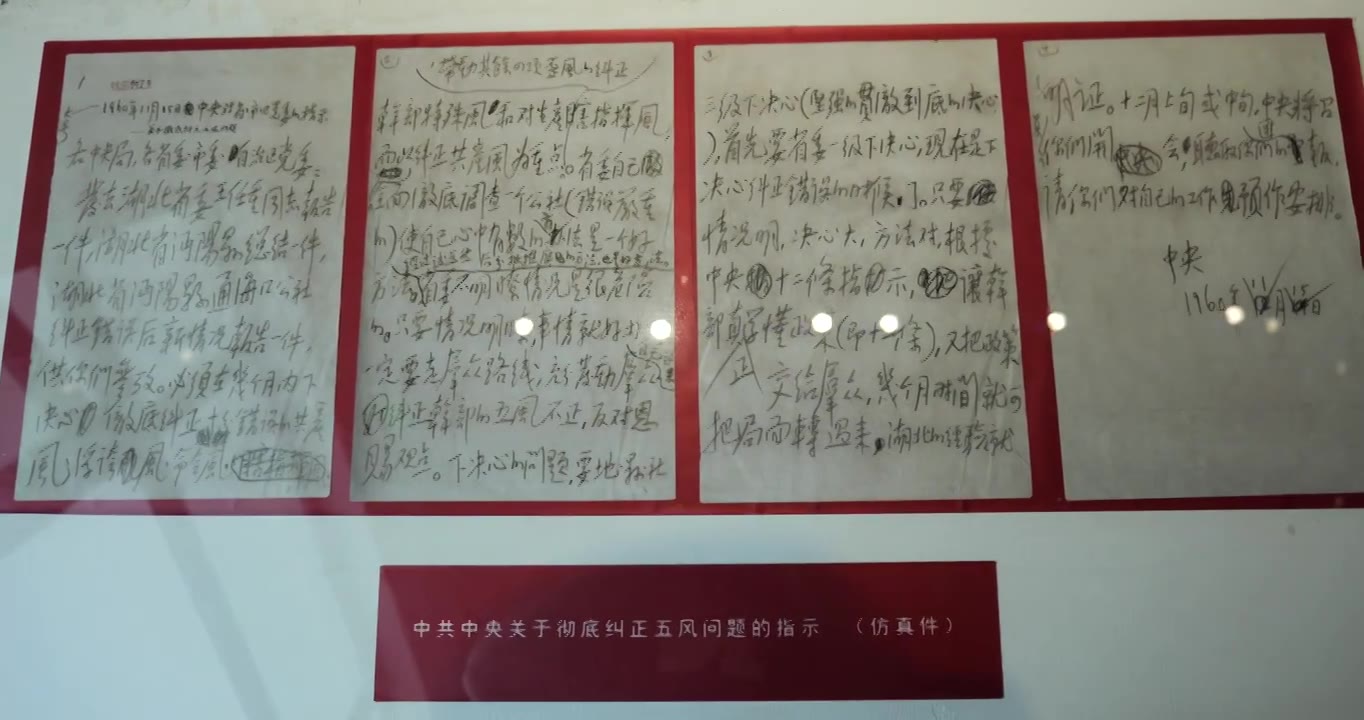 1960年11月15日中央对各省市区党委的指示
各中央局,各省委市委自治区党委:
发去湖北省委王任重同志報告
一件,湖北省沔陽县总结一件,
湖北省沔陽县通海口公社
纠正錯误后新情况報告一件,
供你們參攷。必須在幾个月内下
决心徹底纠正錯误的共産
風,浮誇風,命令風,
带动其餘四项歪風的纠正
幹部特殊風和对生産瞎指揮風,
而以纠正共産風为重点。省委自己
全面徹底調查一个公社(錯误嚴重
的)使自己心中有数的方法是一个好
方法。省委不明暸情况是很危险
的。只要情况明,事情就好办。
一定要走羣众路线,充分發動羣众
纠正幹部的五風不正,反对恩
賜观点。下决心的问题,要地、县、社
三级下决心(坚强的貫徹到底的决心
),首先要省委一级下决心,现在是下
决心纠正錯误的时候了。只要
情况明,决心大,方法对,根據
中央十二条指示,讓幹
部真正懂政策(即十二条),又把政策
交给羣众,幾个月时間就可
把局面轉过来,湖北的经验就
是明证。十二月上旬或中旬,中央将召
集你們開会,聽取你們的報,
請你們对自己的工作预作安排。
中央
1960年11月15日
中共中央关于彻底纠正五风问题的指示 （仿真件）